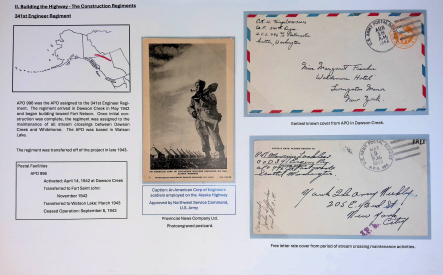 II. Building the Highway - The Construction Regiments
341st Engineer Regiment
APO 996 was the APO assigned to the 341st Engineer Regi-
ment. The regiment arrived in Dawson Creek in May 1942
and began building toward Fort Nelson. Once initial con-
struction was complete, the regiment was assigned to the
maintenance of all stream crossings between Dawson
Creek and Whitehorse. The APO was based in Watson
Lake.
The regiment was transferred off of the project in late 1943.
Postal Facilities
APO 996
Activated: April 14, 1942 at Dawson Creek
Transferred to Fort Saint John:
November 1942
Transferred to Watson Lake: March 1943
Ceased Operation: September 8, 1943
Caption: An American Corp of Engineers
soldiers employed on the Alaska Highway
Approved by Northwest Service Command,
U.S. Army
Provincial News Company Ltd.
Photoengraved postcard.
Seattle, Washington
Miss Margaret
Hotel
Manor
New York
Earliest known cover from APO in Dawson Creek.
Yank The Army Weekly
205 E. 42nd Street
New York
City
Free letter rate cover from period of stream crossing maintenance activities.